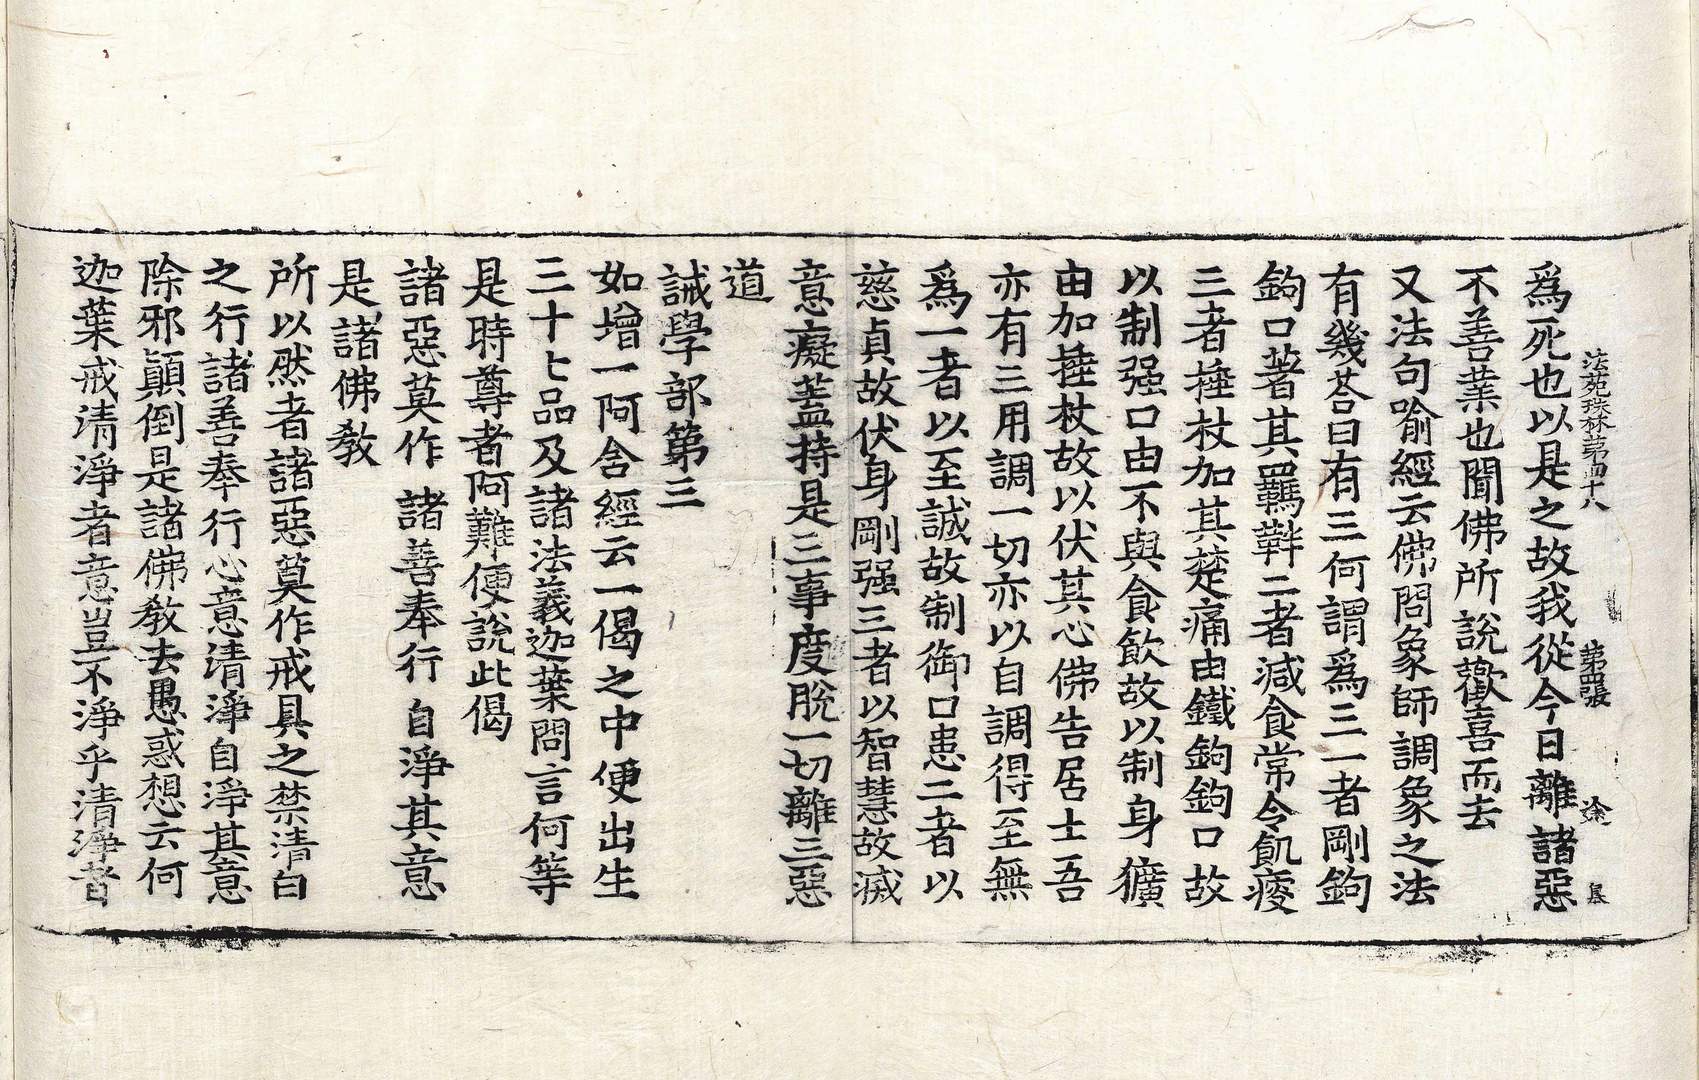 法苑珠林第四十八 第四張 途
爲死也以是之故我從今日離諸惡
不善業也聞佛所說歡喜而去
又法句喻經云佛問象師調象之法
有幾荅曰有三何謂爲三一者剛鉤
鉤口著其羈靽二者減食常令飢瘦
三者捶杖加其楚痛由鐵鉤鉤口故
以制强口由不與食飲故以制身獷
由加捶杖故以伏其心佛告居士吾
亦有三用調一切亦以自調得至無
爲一者以至誠故制御口患二者以
慈貞故伏身剛强三者以智慧故滅
意癡盖持是三事度脫一切離三惡
道
誡學部第三
如增一阿含經云一偈之中便出生
三十七品及諸法義迦葉問言何等
是時尊者阿難便說此偈
諸惡莫作 諸善奉行 自淨其意
是諸佛教
所以然者諸惡莫作戒具之禁清白
之行諸善奉行心意清淨自淨其意
除邪顚倒是諸佛教去愚惑想云何
迦葉戒清淨者意豈不淨乎清淨者